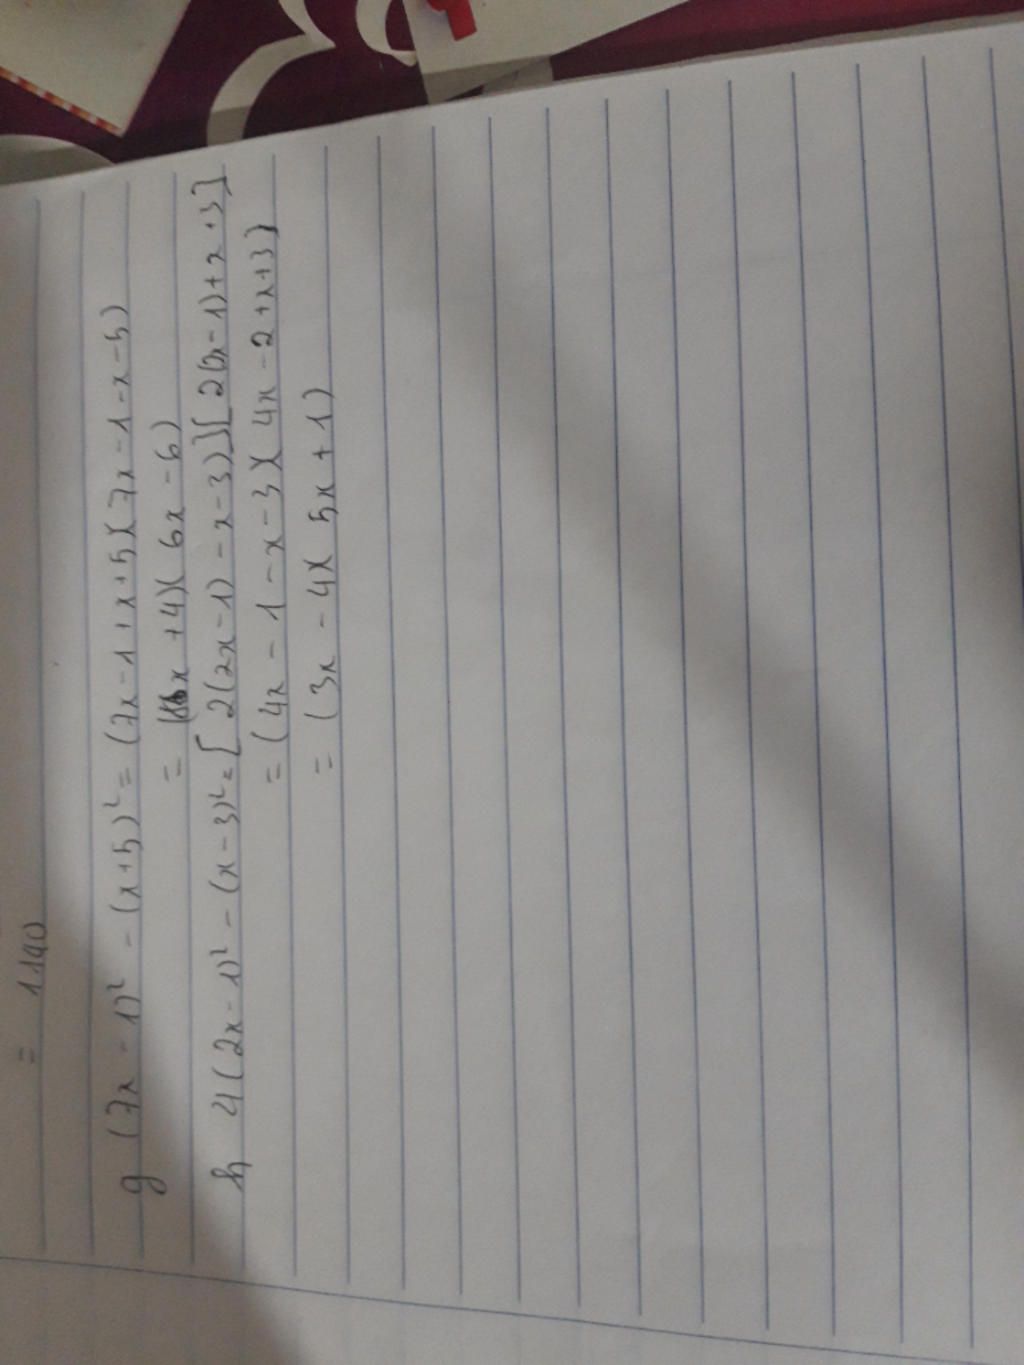 = 1140
g (7x - 1)² - (x+5)² = (7x - 1 + x + 5)(7x - 1 - x - 5)
= (8x + 4)( 6x - 6)
h 4(2x - 1)² - (x - 3)² = [ 2(2x - 1) - x - 3)][ 2(2x - 1) + x + 3]
= (4x - 1 - x - 3)( 4x - 2 + x + 3)
= (3x - 4)( 5x + 1)